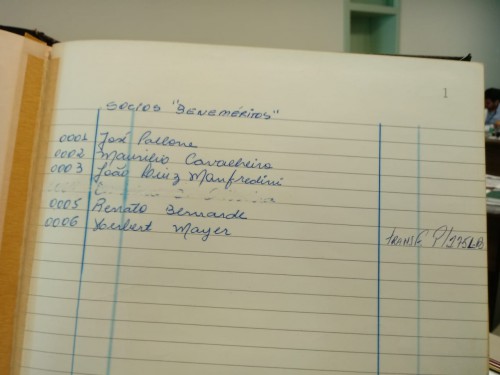 1
SOCIOS "BENEMÉRITOS"
0001 José Pallone
0002 Maurilio Cavacheiro
0003 João Luiz Manfredini
0005 Renato Bernarde
0006 Herbert Mayer